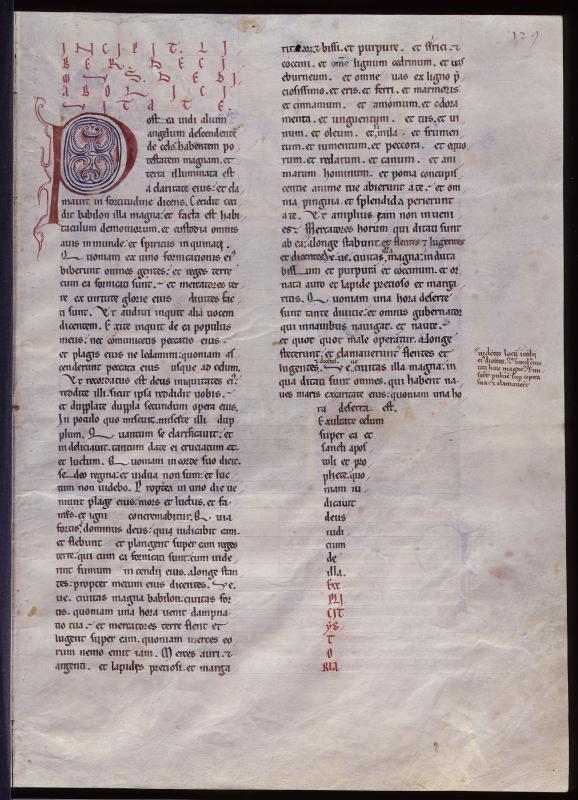 129
INCIPIT LI
BER
post ea uidi alium
angelum descendente
de celo habentem po
testatem magnam. et
terra illuminata est
a claritate eius. et cla
mauit in fortitudine dicens. Cecidit ceci
dit babilon illa magna. et facta est habi
taculum demoniorum. et custodia omnis
auis inmunde. et spiritus inquinati.
Quoniam ex uino fornicationis ei9
biberunt omnes gentes. et reges terre
cum ea fornicati sunt. et mercatores ter
re ex uirtute glorie eius diuites fac
ti sunt. Et audiui inquit alia uocem
dicentem. Exite inquit de ea populus
meus. ne comunicetis peccatis eius.
et plagis eius ne ledamini. quoniam as
cenderunt peccata eius usque ad celum.
Et recordatus est deus iniquitates ei9
reddite illi. sicut ipsa reddidit uobis.
et duplate dupla secundum opera eius.
In poculo quo miscuit. miscete illi du
plum. Quantum se clarificauit. et
in deliciauit. tantum date ei cruciatum et
et luctum. Quoniam in corde suo dicit.
sedeo regina. et uidua non sum. et luc
tum non uidebo. Propterea in uno die ue
niunt plage eius. mors et luctus. et fa
mes. et igni concremabitur. Quia
fortis. dominus deus. qui iudicabit eam.
et flebunt et plangent super eam reges
terre. qui cum ea fornicati sunt. cum uide
rint fumum incendii eius. alonge stan
tes. propter metum eius dicentes. Ue.
ue. ciuitas magna babilon. ciuitas for
tis. quoniam una hora uenit dampna
tio tua. et mercatores terre flent et
lugent super eam. quoniam merces eo
rum nemo emit iam. Merces auri. et
argenti. et lapides preciosi. et marga
bissi. et purpure. et sirici. et
coccini. et omne lignum cedrinum. et uas
eburneum. et omne uas ex ligno p
ciosissimo. et eris. et ferri. et marmoris
et cinnamum. et amomum. et odora
menta. et unguentum. et tus. et ui
num. et oleum. et simila. et frumen
tum. et iumentum. et peccora. et equo
rum. et redarum. et canum. et ani
marum hominum. et poma concupis
centie anime tue abierunt a te. et om
nia pinguia. et splendida perierunt
a te. Et amplius eam non inueni
es. Mercatores horum qui ditati sunt
ab ea. alonge stabunt. et flentes et lugentes
et dicentes. ue. ue. ciuitas illa magna. induta
bissum et purpura et coccinum. et or
nata auro et lapide precioso et marga
ritis. Quoniam una hora deserte
sunt tante diuicie. et omnis gubernator
qui in nauibus nauigat. et naute.
et quot quot male operatur. alonge
steterunt. et clamauerunt flentes et
lugentes. Ue. ciuitas illa magna. in
qua ditati sunt omnes. qui habent na
ues maris ex caritate eius. quoniam una ho
ra deserta est.
Exultate celum
super ea et
sancti apos
toli et pro
phete. quo
niam iu
dicauit
deus
iudi
cium
de
illa.
EX
PLI
CIT
YS
T
O
RIA